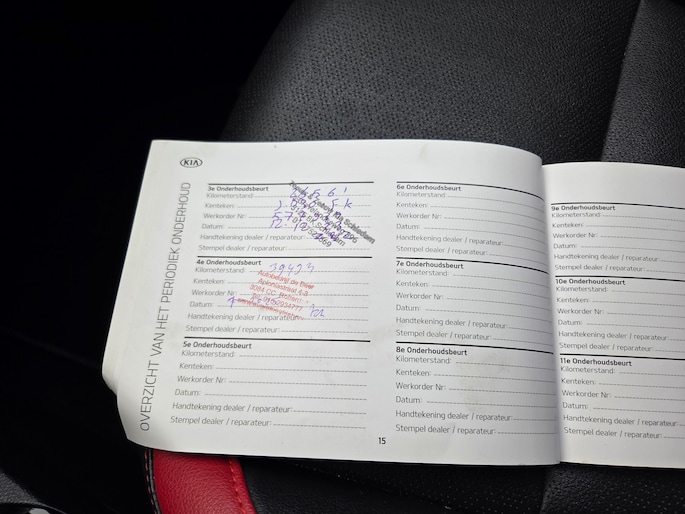 KIA
OVERZICHT VAN HET PERIODIEK ONDERHOUD
3e Onderhoudsbeurt
Kilometerstand:
Kenteken:
Werkorder Nr:
Datum:
Handtekening dealer / reparateur:
Stempel dealer / reparateur:
4e Onderhoudsbeurt
Kilometerstand: 39423
Kenteken:
Werkorder Nr:
Datum:
Handtekening dealer / reparateur:
Stempel dealer / reparateur:
5e Onderhoudsbeurt
Kilometerstand:
Kenteken:
Werkorder Nr:
Datum:
Handtekening dealer / reparateur:
Stempel dealer / reparateur:
6e Onderhoudsbeurt
Kilometerstand:
Kenteken:
Werkorder Nr:
Datum:
Handtekening dealer / reparateur:
Stempel dealer / reparateur:
7e Onderhoudsbeurt
Kilometerstand:
Kenteken:
Werkorder Nr:
Datum:
Handtekening dealer / reparateur:
Stempel dealer / reparateur:
8e Onderhoudsbeurt
Kilometerstand:
Kenteken:
Werkorder Nr:
Datum:
Handtekening dealer / reparateur:
Stempel dealer / reparateur:
15
9e Onderhoudsbeurt
Kilometerstand:
Kenteken:
Werkorder Nr:
Datum:
Handtekening dealer / reparateur:
Stempel dealer / reparateur:
10e Onderhoudsbeurt
Kilometerstand:
Kenteken:
Werkorder Nr:
Datum:
Handtekening dealer / reparateur:
Stempel dealer / reparateur:
11e Onderhoudsbeurt
Kilometerstand:
Kenteken:
Werkorder Nr:
Datum:
Handtekening dealer / reparateur:
Stempel dealer / reparateur: